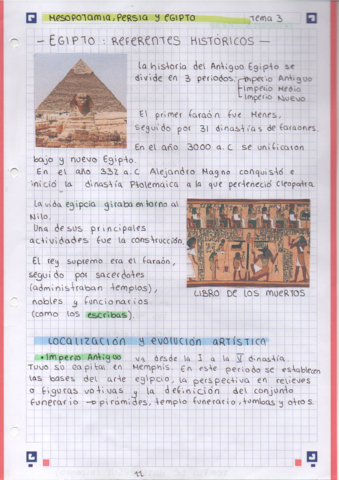 MESOPOTAMIA, PERSIA Y EGIPTO
TEMA 3
- EGIPTO: REFERENTES HISTÓRICOS -
La historia del Antiguo Egipto se
divide en 3 periodos: Imperio Antiguo
Imperio Medio
Imperio Nuevo
El primer faraón fue Menes,
seguido por 31 dinastías de faraones.
En el año 3000 a.C se unificaron
bajo y nuevo Egipto.
En el año 332 a.C Alejandro Magno conquistó e
inició la dinastía Ptolemaica a la que perteneció Cleopatra.
La vida egipcia giraba en torno al
Nilo.
Una de sus principales
actividades fue la construcción.
El rey supremo era el faraón,
seguido por sacerdotes
(administraban templos),
nobles y funcionarios
(como los escribas).
LIBRO DE LOS MUERTOS
LOCALIZACIÓN Y EVOLUCIÓN ARTÍSTICA
• Imperio Antiguo va desde la I a la VI dinastía.
Tuvo so capital en Memphis. En este periodo se establecen
las bases del arte egipcio, la perspectiva en relieves
o figuras votivas y la definición del conjunto
funerario → pirámides, templo funerario, tumbas y otros.